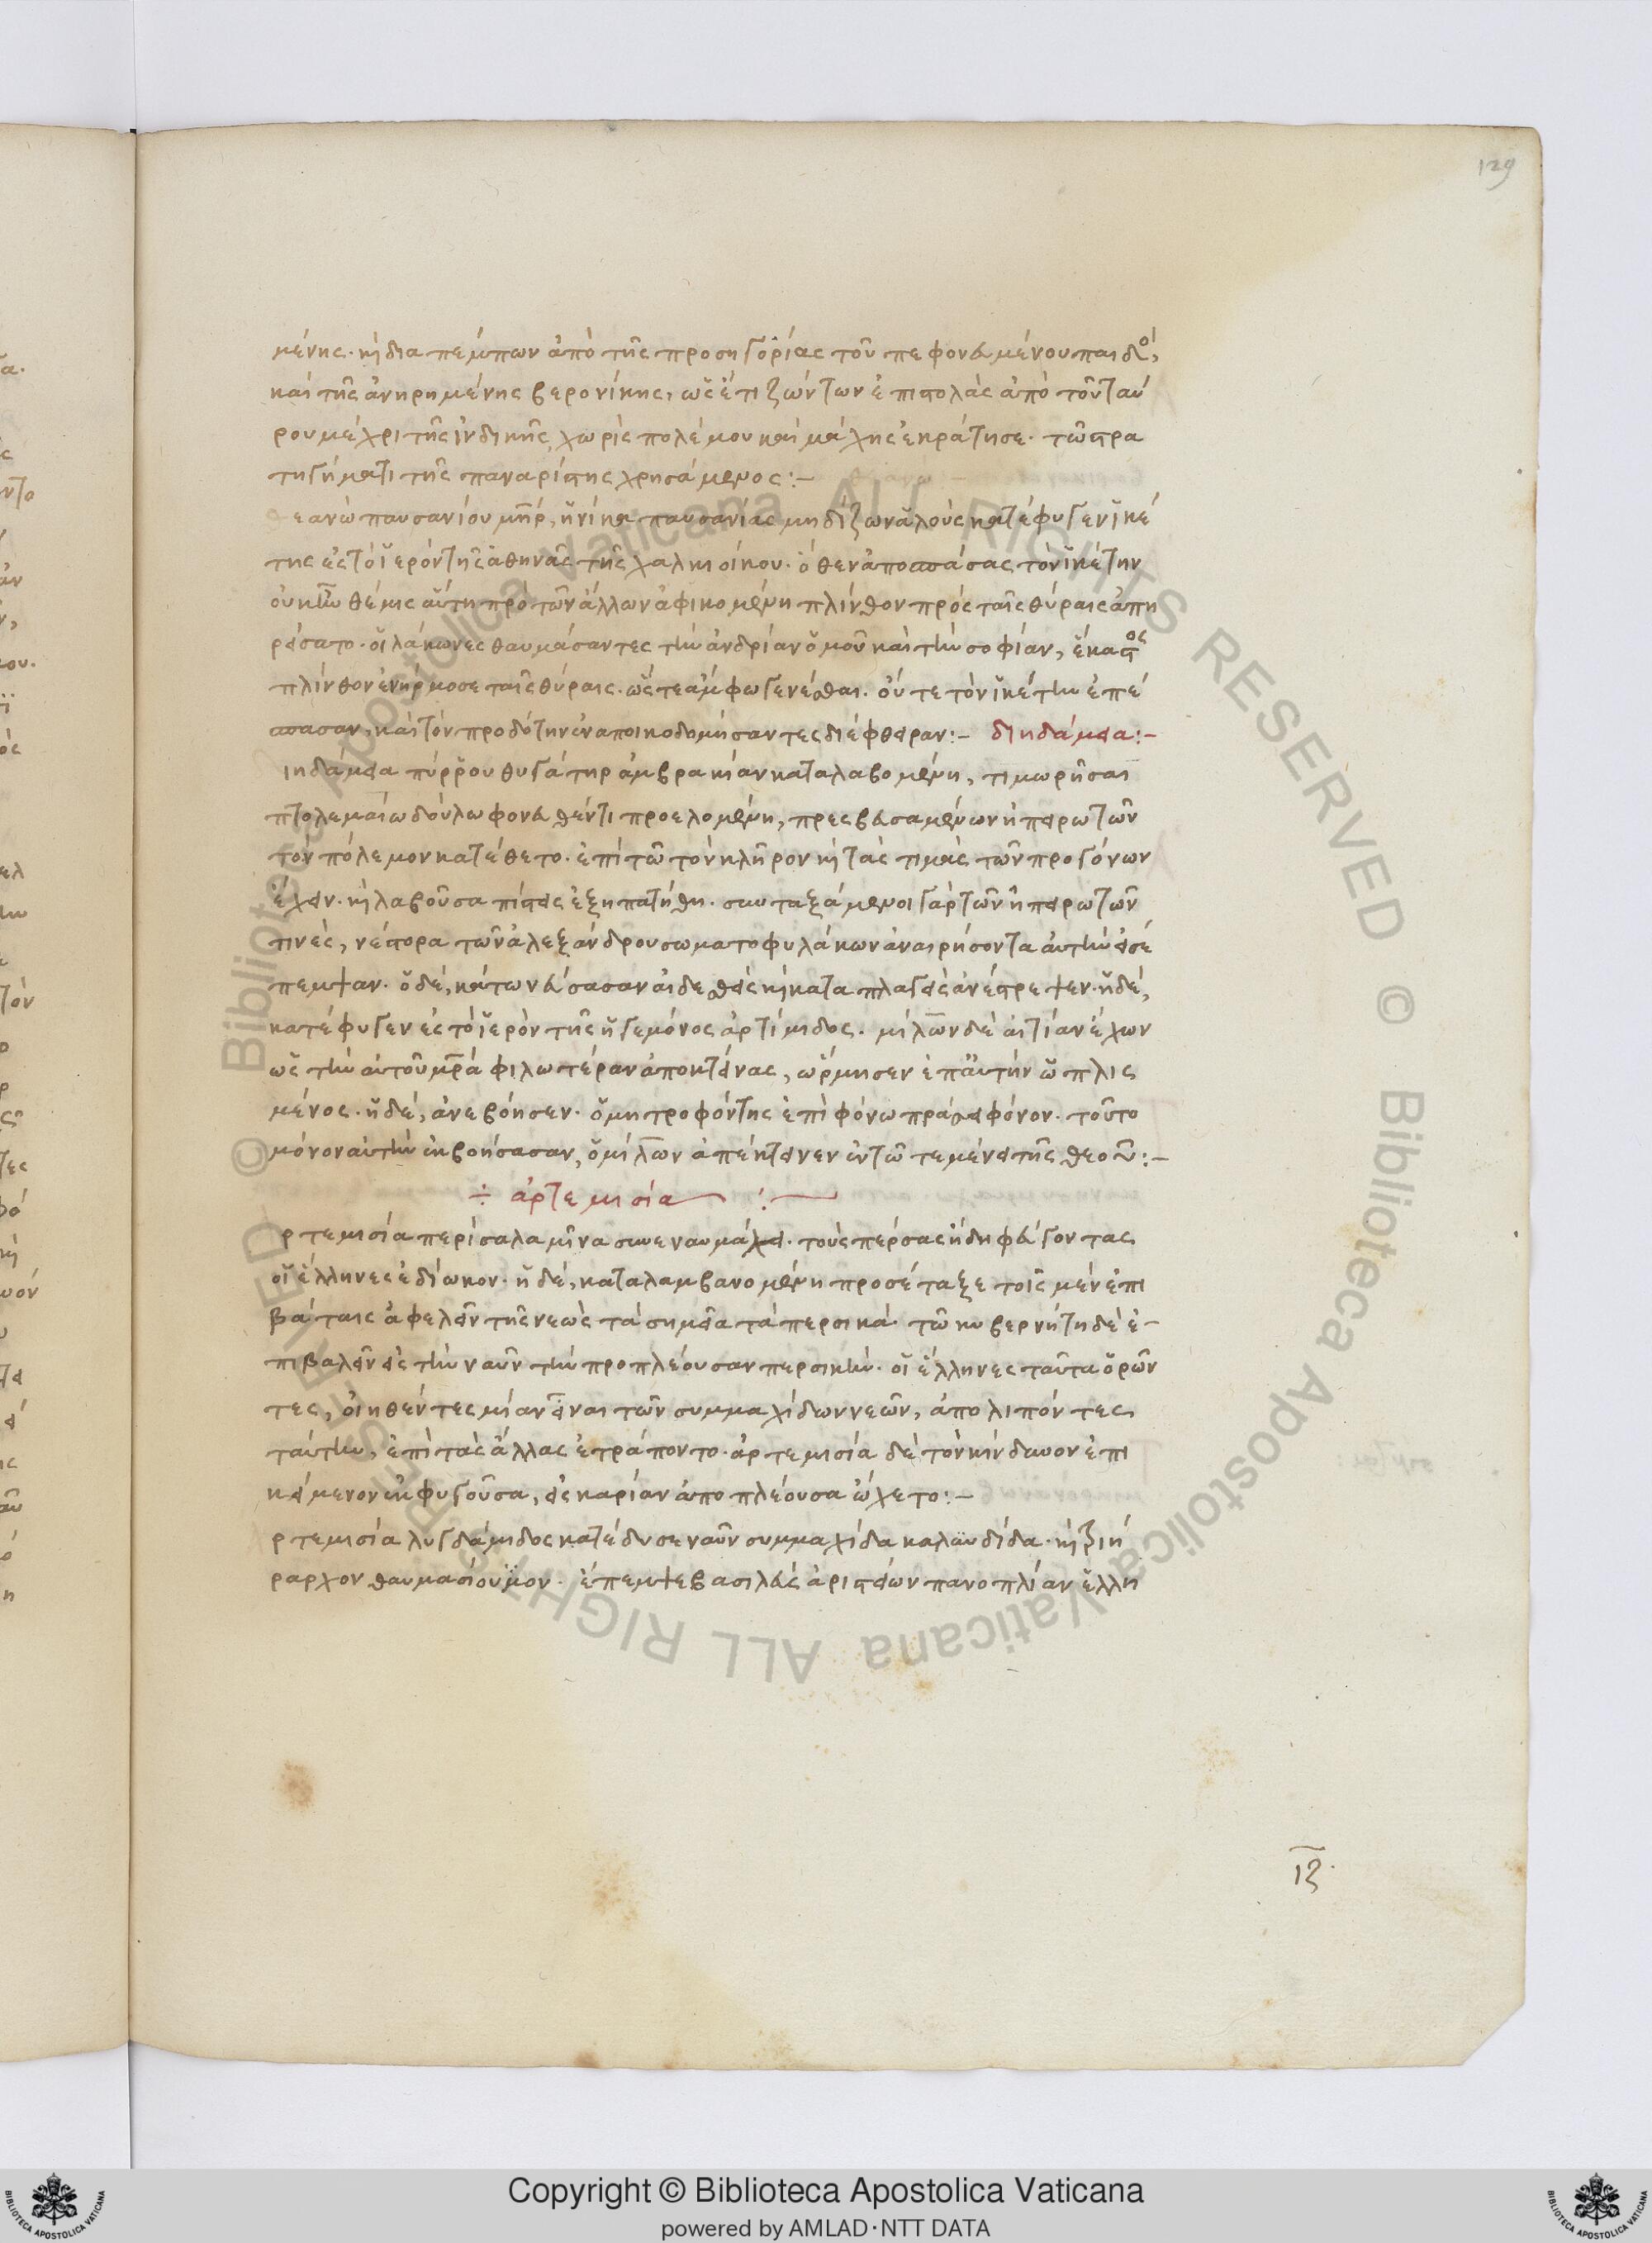 129
μένης· κ̀ διαπέμπων ἀπὸ τῆς προσηγορίας τοῦ πεφονευμένου παιδίου,
καὶ τῆς ἀνηρημένης βερονίκης, ὡς ἔτι ζώντων ἐπιστολὰς ἀπὸ τοῦ ταύ
ρου μέχρι τῆς ἰνδικῆς χωρὶς πολέμου καὶ μάχης ἐκράτησε· τῶ στρα
τηγήματι τῆς παναρίστης χρησάμενος:-
θεανὼ παυσανίου μηρ, ἡνίκα παυσανίας μηδίζων ἁλοὺς κατέφυγεν ἱκέ
της ἐς τὸ ἱερὸν τῆς ἀθηνᾶς τῆς χαλκιοίκου· ὅθεν ἀποσπάσας τὸν ἱκέτην
οὐκ ἦν θέμις αὕτη πρὸ τῶν ἄλλων ἀφικομένη πλίνθον πρὸς ταῖς θύραις ἀπη
ρείσατο· οἱ λάκωνες θαυμάσαντες τὴν ἀνδρίαν ὁμοῦ καὶ τὴν σοφίαν, ἕκαστος
πλίνθον ἐνήρμοσε ταῖς θύραις· ὥστε ἄμφω γενέσθαι· οὔτε τὸν ἱκέτην ἐπέ
σπασαν, καὶ τὸν προδότην ἐναποικοδομήσαντες διέφθειραν:- διηδάμεια:-
ιηδάμεια πύρρου θυγάτηρ ἀμβρακίαν καταλαβομένη, τιμωρῆσαι
πτολεμαίω δούλω φονευθέντι προελομένη, πρεσβευσαμένων ἠπειρωτῶν
τὸν πόλεμον κατέθετο· ἐπὶ τῶ τὸν κλῆρον κ̀ τὰς τιμὰς τῶν προγόνων
ἔχειν· κ̀ λαβοῦσα πίστεις ἐξηπατήθη· συνταξάμενοι γὰρ τῶν ἠπειρωτῶν
τινὲς, νέστορα τῶν ἀλεξάνδρου σωματοφυλάκων ἀναιρήσοντα αὐτὴν εἰσέ
πεμψαν· ὁ δὲ, κάτω νεύσασαν αἰδεσθεὶς κ̀ καταπλαγεὶς ἀνέστρεψεν· ἡ δὲ,
κατέφυγεν ἐς τὸ ἱερὸν τῆς ἡγεμόνος ἀρτίμιδος· μίλων δὲ αἰτίαν ἔχων
ὡς τὴν αὑτοῦ μρα φιλωτέραν ἀποκτείνας, ὥρμησεν ἐπ αὐτὴν ὡπλις
μένος· ἡ δὲ, ἀνεβόησεν· ὁ μητροφόντης ἐπὶ φόνω πράσσει φόνον· τοῦτο
μόνον αὐτὴν ἐκβοήσασαν, ὁ μίλων ἀπέκτεινεν ἐν τῶ τεμένει τῆς θεοῦ:-
÷ ἀρτεμισία :-
ρτεμισία περὶ σαλαμῖνα συνεναυμάχει· τοὺς πέρσας ἤδη φεύγοντας
οἱ ἕλληνες ἐδίωκον· ἡ δὲ, καταλαμβανομένη προσέταξε τοῖς μὲν ἐπι
βάταις ἀφελεῖν τῆς νεὼς τὰ σημεῖα τὰ περσικά· τῶ κυβερνήτη δὲ ἐ-
πιβαλεῖν εἰς τὴν ναῦν τὴν προπλέουσαν περσικήν· οἱ ἕλληνες ταῦτα ὁρῶν
τες, οἰηθέντες μίαν εἶναι τῶν συμμαχίδων νεῶν, ἀπολιπόντες
ταύτην, ἐπὶ τὰς ἄλλας ἐτράποντο· ἀρτεμισία δὲ τὸν κίνδυνον ἐπι
κείμενον ἐκφυγοῦσα, εἰς καρίαν ἀποπλέουσα ὤχετο:-
ρτεμισία λυγδάμιδος κατέδυσε ναῦν συμμαχίδα καλυδίδα· κ̀ τριή
ραρχον θαυμασίουμον· ἔπεμψε βασιλεὺς ἀριστεῖων πανοπλίαν ἕλλη
ιζ·